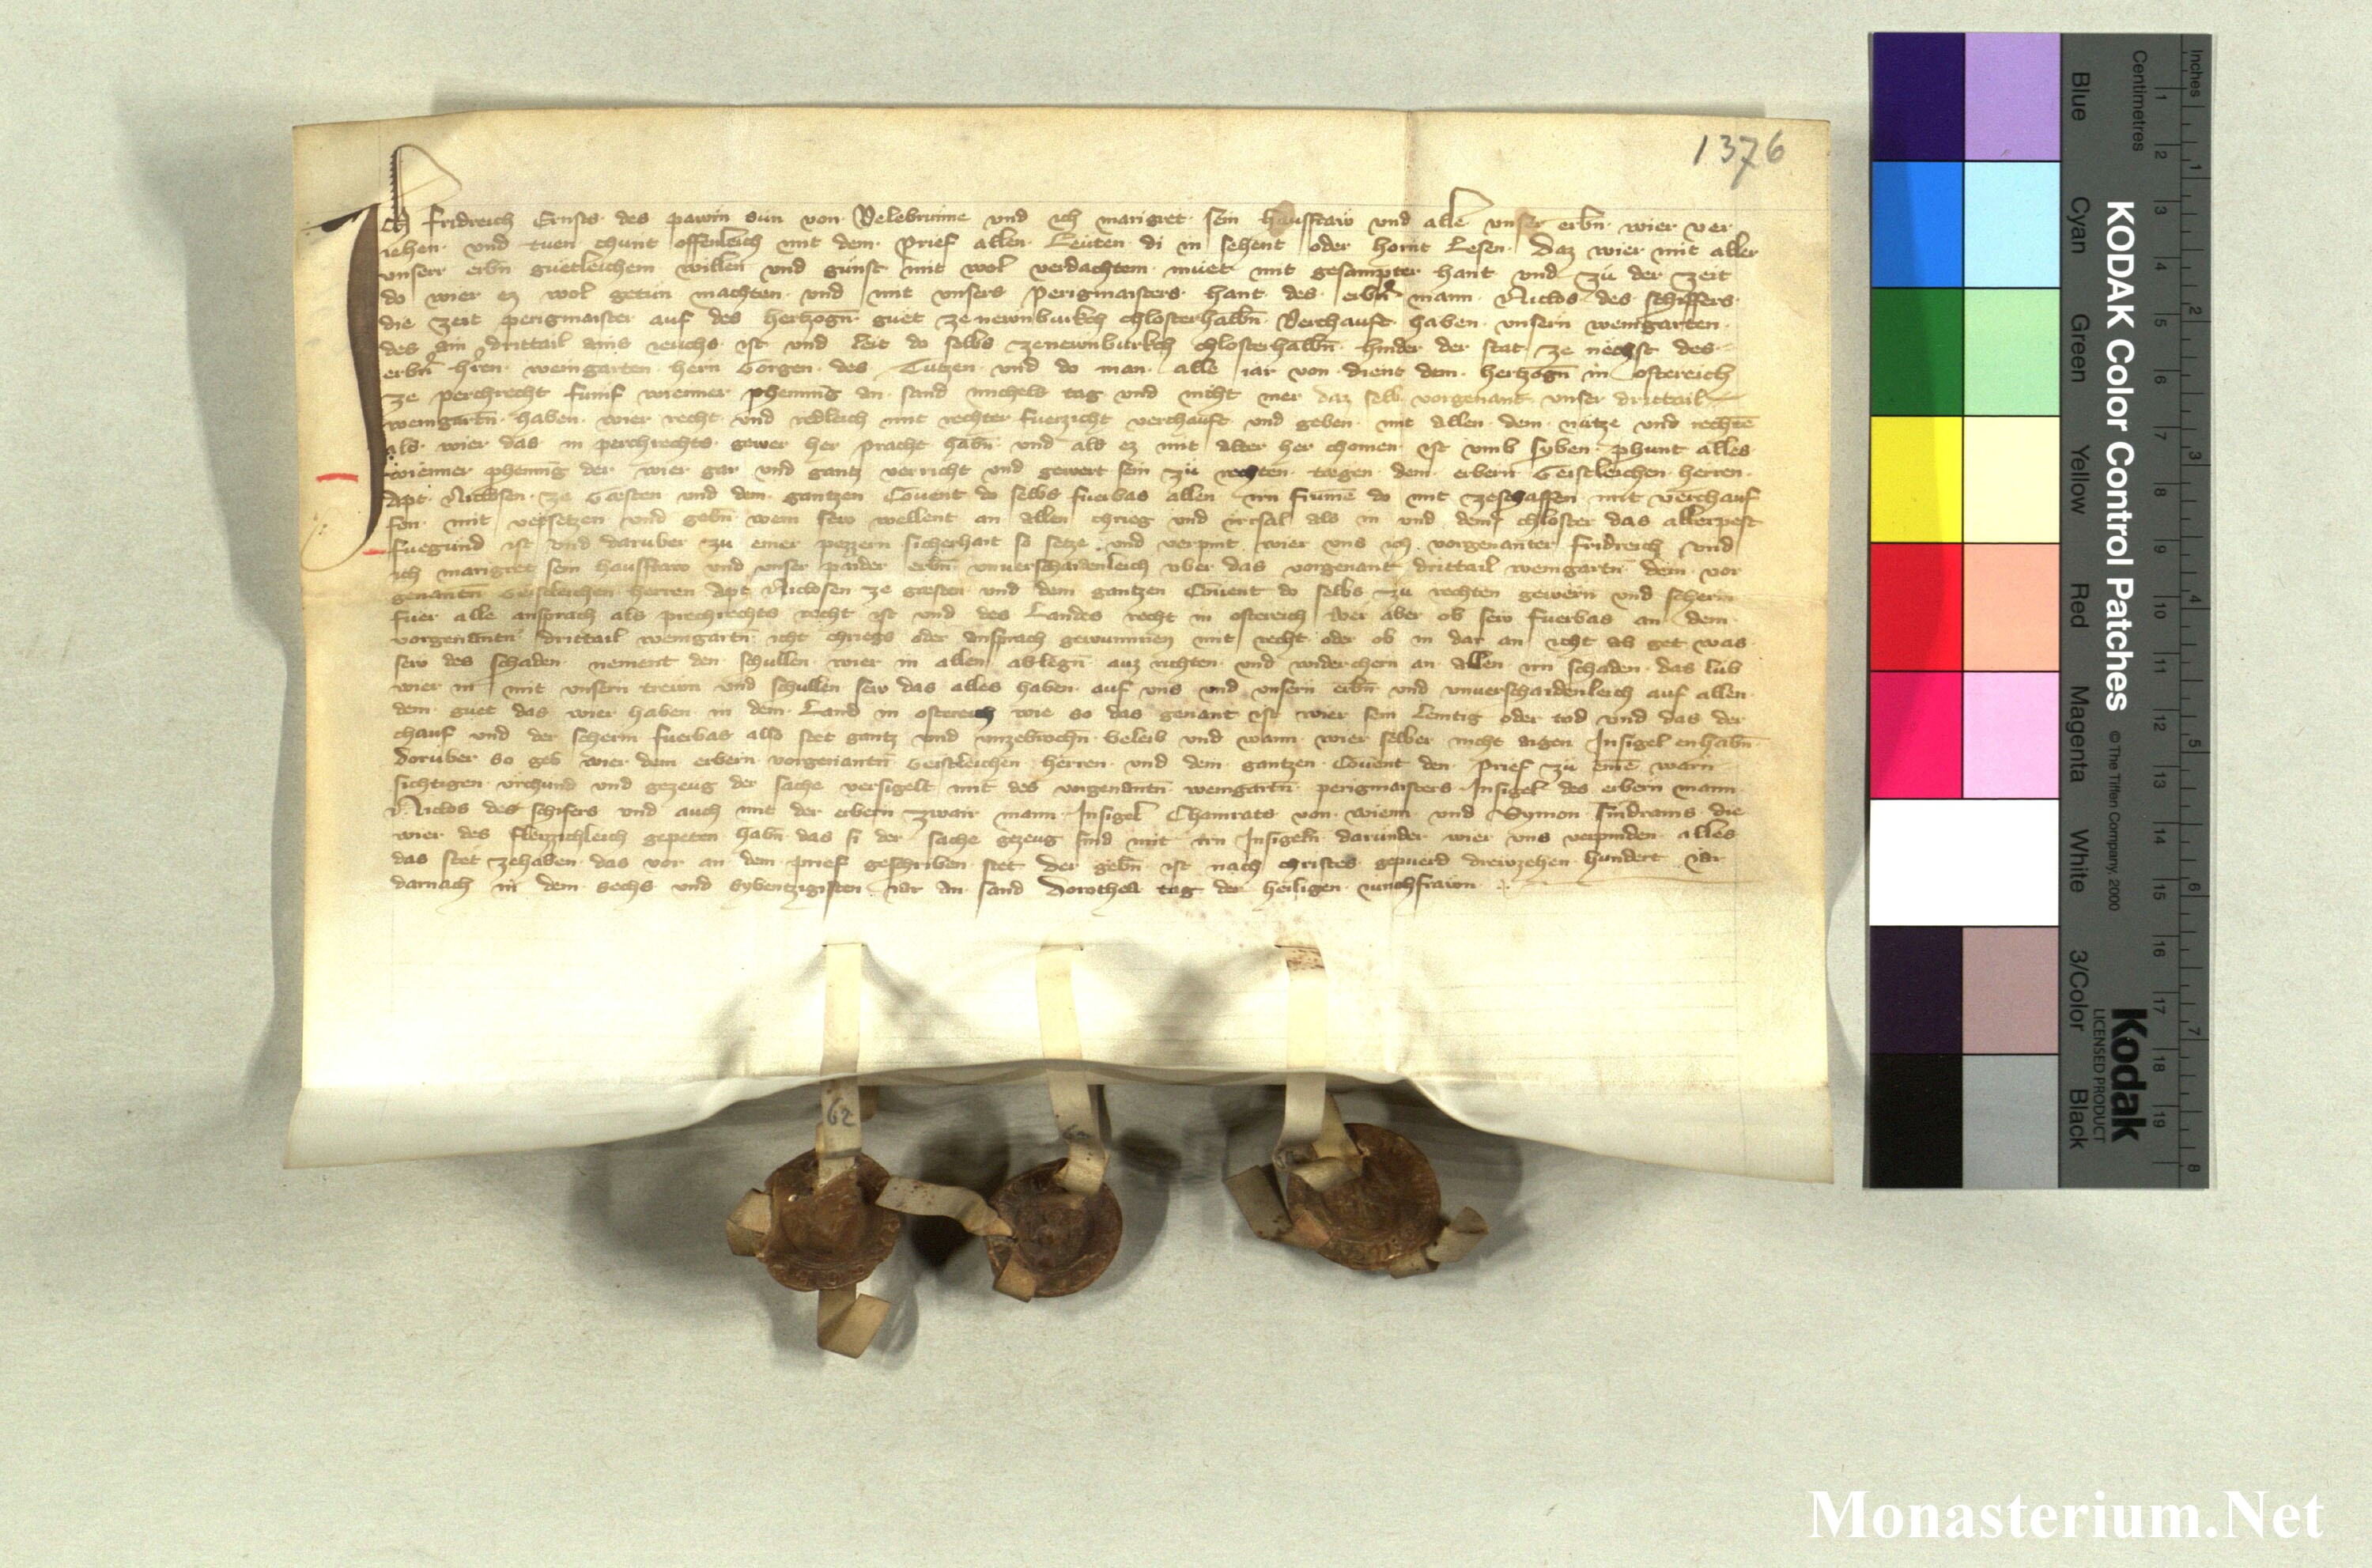 1376
Ich fridreich Ernsts des pawin sun von Velebrunne und ich margret sein hausfraw und alle unser erbn wier ver
iehen und tuen chunt offenleich mit dem prief allen Leuten di in sehent oder hornt Lesen Daz wier mit aller
unserr erbn guetleichem willen und gunst mit wol verdachtem muet mit gesampter hant und zu der zeit
do wier ez wol getun machten und mit unsers perigmaisters hant des erbn mann Niclos des schiffers
die zeit perigmaister auf des hertzogn guet ze newnburkch chlosterhalbn Verchauft haben unsern weingarten
des ain drittail ains ieuchs ist und leit do selbs ze newnburkch chlosterhalbn hinder der stat ze nechst des
erbn hren weingarten hern Gorgen des und do man alle iar von dient dem hertzogn in ostereich
ze perchrecht funf wienner phennig an sand michels tag und nicht mer daz selb vorgenant unser drittail
weingartn haben wier recht und redleich mit rechter fuerzicht verchauft und geben mit allen dem nutze und rechte
als wier das in perchrechts gewer her pracht habn und als ez mit alter her chomen ist umb syben phunt alles
wienner phennig der wier gar und gantz verricht und gewert sein zu rechten tægen dem erbern Geistleichen herren
Apt Niclosen ze Gæsten und dem gantzen Covent do selbs fuerbas allen irn frume do mit ze schaffen mit verchauf
fen mit versetzen und gebn wem sew wellent an allen chrieg und irrsal als in und dem chloster das allerpest
fuegund ist und daruber zu einer pezzern sicherhait so setze und verpint wier uns ich vorgenanter fridreich und
ich margret sein hausfraw und unser paider erbn unverschaidenleich uber das vorgenant drittail weingartn dem vor
genantn Geistleichen herren Apt Niclosen ze gæsten und dem gantzen Covent do selbs zu rechten gewern und scherm
fuer alle ansprach als perchrechts recht ist und des Landes recht in ostereich Wer aber ob sew fuerbas an dem
vorgenantn drittail weingartn icht chriegs oder ansprach gewunnen mit recht oder ob in dar an icht ab get was
sew des schaden nement den schullen wier in allen ablegn auz richten und widerchern an allen irn schaden das lub
wier in mit unsern trewn und schullen sew das alles haben auf uns und unsern erbn und unverschaidenleich auf allen
dem guet das wier haben in dem Land in ostereich wie so das genant ist wier sein lemtig oder tod und das der
chauf und der scherm fuerbas also stet gantz und unzebrochn beleib und wann wier selber nicht aigen Insigel enhabn
Doruber so geb wier dem erbern vorgenantn Geistleichen herren und dem gantzen Covent den prief zu eine warn
sichtigen urchund und gezeug der sache versigelt mit des vorgenantn weingartn perigmaisters Insigel des erbern mann
Niclos des schifers und auch mit der erbern zwair mann Insigel Chunrats von wienn und Symon die
wier des fleizzichleich gepeten habn das si der sache gezeug sind mit irn Insigeln darunder wier uns verpinden alles
das stet zehaben das vor an dem prief geschriben stet Der gebn ist nach christes gepuerd drewzehen hundert iar
darnach in dem sechs und sybentzigisten iar an sand Dorothea tag der heiligen iunchfrawn
62
Inches
Centimetres
1 2 3 4 5 6 7 8 9 10 11 12 13 14 15 16 17 18 19
1 2 3 4 5 6 7 8
KODAK Color Control Patches
© The Tiffen Company, 2000
Kodak
LICENSED PRODUCT
Blue
Cyan
Green
Yellow
Red
Magenta
White
3/Color
Black
Monasterium.Net